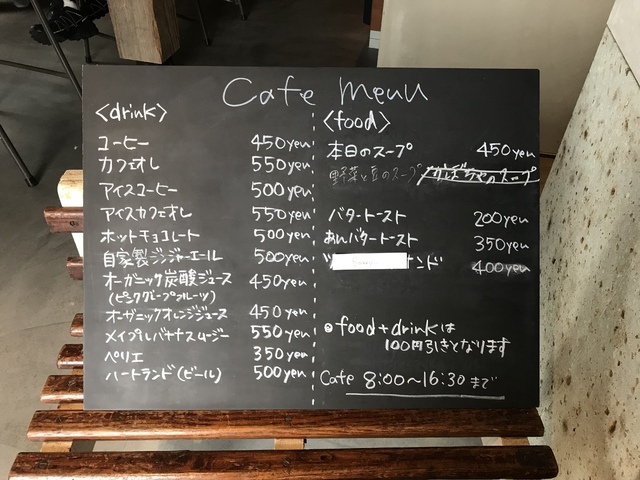 Cafe Menu
<drink>
コーヒー 450yen
カフェオレ 550yen
アイスコーヒー 500yen
アイスカフェオレ 550yen
ホットチョコレート 500yen
自家製ジンジャーエール 500yen
オーガニック炭酸ジュース 450yen
(ピンクグレープフルーツ)
オーガニックオレンジジュース 450yen
メイプルバナナスムージー 550yen
ペリエ 350yen
ハートランド(ビール) 500yen
<food>
本日のスープ 450yen
野菜と豆のスープ かぼちゃのスープ
バタートースト 200yen
あんバタートースト 350yen
ツ ンド 400yen
◎food+drinkは
100円引きとなります
Cafe 8:00～16:30まで